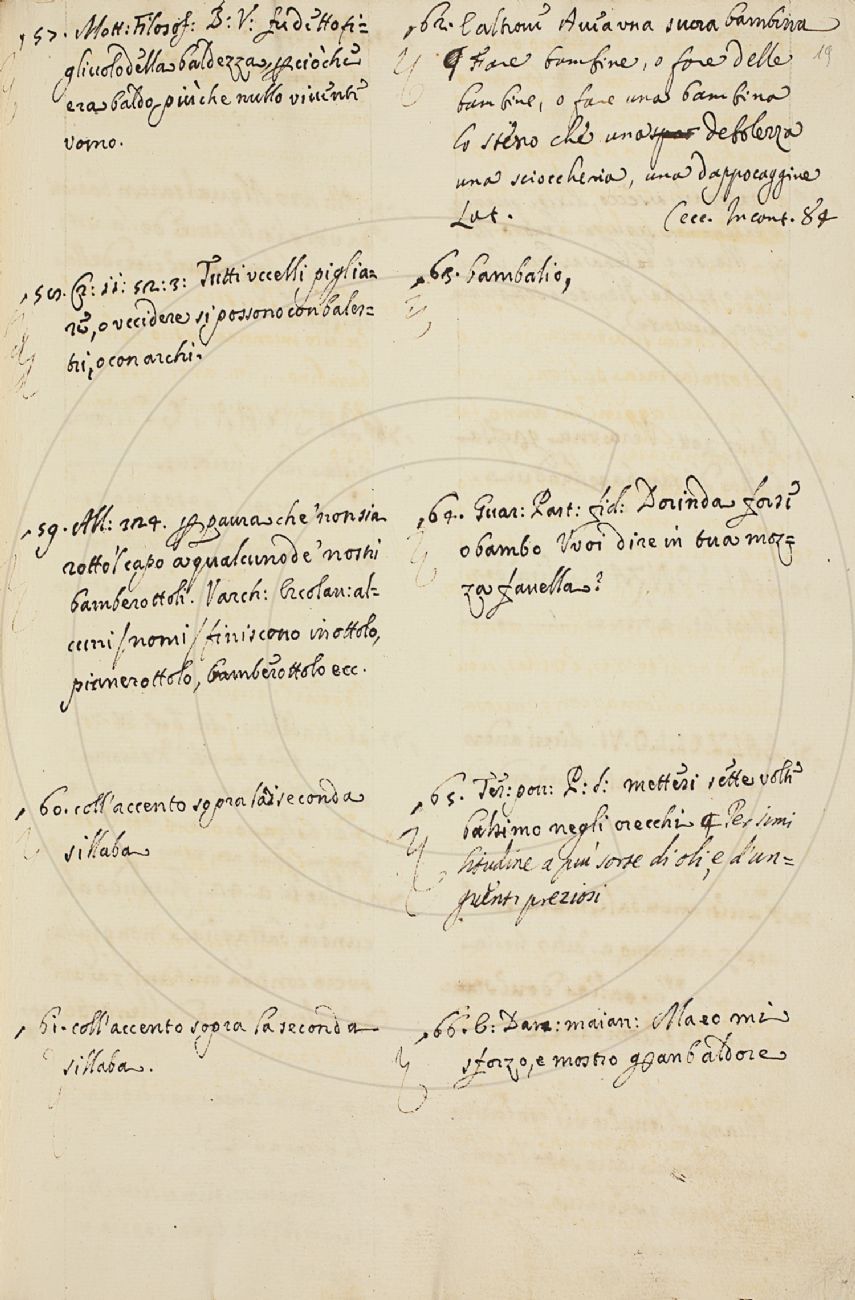 57. Mott: Filosof: B: V: fu detto fi=
gliuolo della baldezza, perciò che
era baldo più che nullo vivente
vomo.
58. Cr: 11: 52: 3: Tutti vccelli piglia=
re, o vccidere si possono con bales=
tri, o con archi.
59. All: 324. per paura che non sia
rotto 'l capo a qualcuno de' nostri
bamberottoli. Varch: Ercolan: al=
cuni / nomi / finiscono in ottolo,
pianerottolo, bamberottolo ecc.
60. coll'accento sopra la seconda
sillaba
61. coll'accento sopra la seconda
sillaba.
19
62. E altrove Avea vna suora bambina
Fare bambine, o fare delle
bambine, o fare una bambina
lo stesso che una debolezza
una scioccheria, una dappocaggine
Lat. Cecc. Incant. 84
63. bambalio,
64. Guar: Past: fid: Dorinda forse
o bambo Vuoi dire in tua moz=
za favella?
65. Tes: pov: P: S: mettesi sette volte
balsimo negli orecchi Per simi
litudine a più sorte di oli, e d'un=
guenti preziosi
66. B: Dan: maian: Ma eo mi
sforzo, e mostro gran baldore